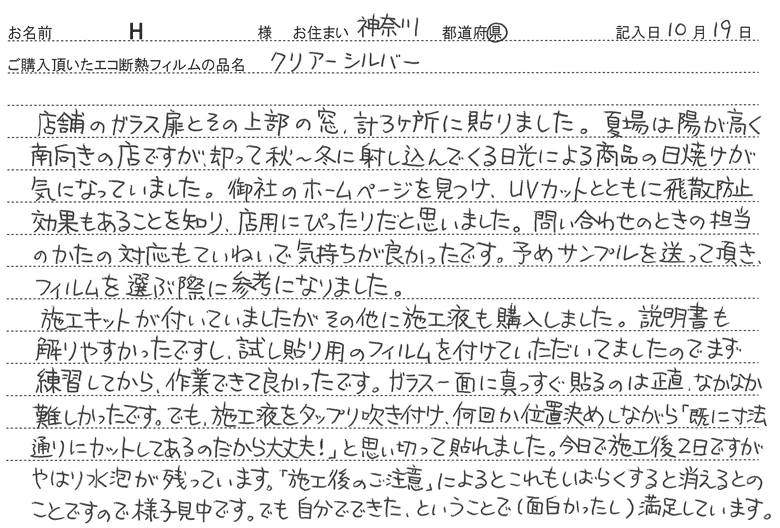 お名前 H 様 お住まい 神奈川 都道府県 記入日 10月19日
ご購入頂いたエコ断熱フィルムの品名 クリアーシルバー
店舗のガラス扉とその上部の窓、計3ヶ所に貼りました。夏場は陽が高く
南向きの店ですが、却って秋〜冬に射し込んでくる日光による商品の日焼けが
気になっていました。御社のホームページを見つけ、UVカットとともに飛散防止
効果もあることを知り、店用にぴったりだと思いました。問い合わせのときの担当
のかたの対応もていねいで気持ちが良かったです。予めサンプルを送って頂き、
フィルムを選ぶ際に参考になりました。
施工キットが付いていましたがその他に施工液も購入しました。説明書も
解りやすかったですし、試し貼り用のフィルムを付けていただいてましたのでまず
練習してから、作業できて良かったです。ガラス一面に真っすぐ貼るのは正直、なかなか
難しかったです。でも、施工液をタップリ吹き付け、何回か位置決めしながら「既に寸法
通りにカットしてあるのだから大丈夫!」と思い切って貼れました。今日で施工後2日ですが
やはり水泡が残っています。「施工後のご注意」によるとこれもしばらくすると消えるとの
ことですので様子見中です。でも自分でできた、ということで(面白かったし)満足しています。